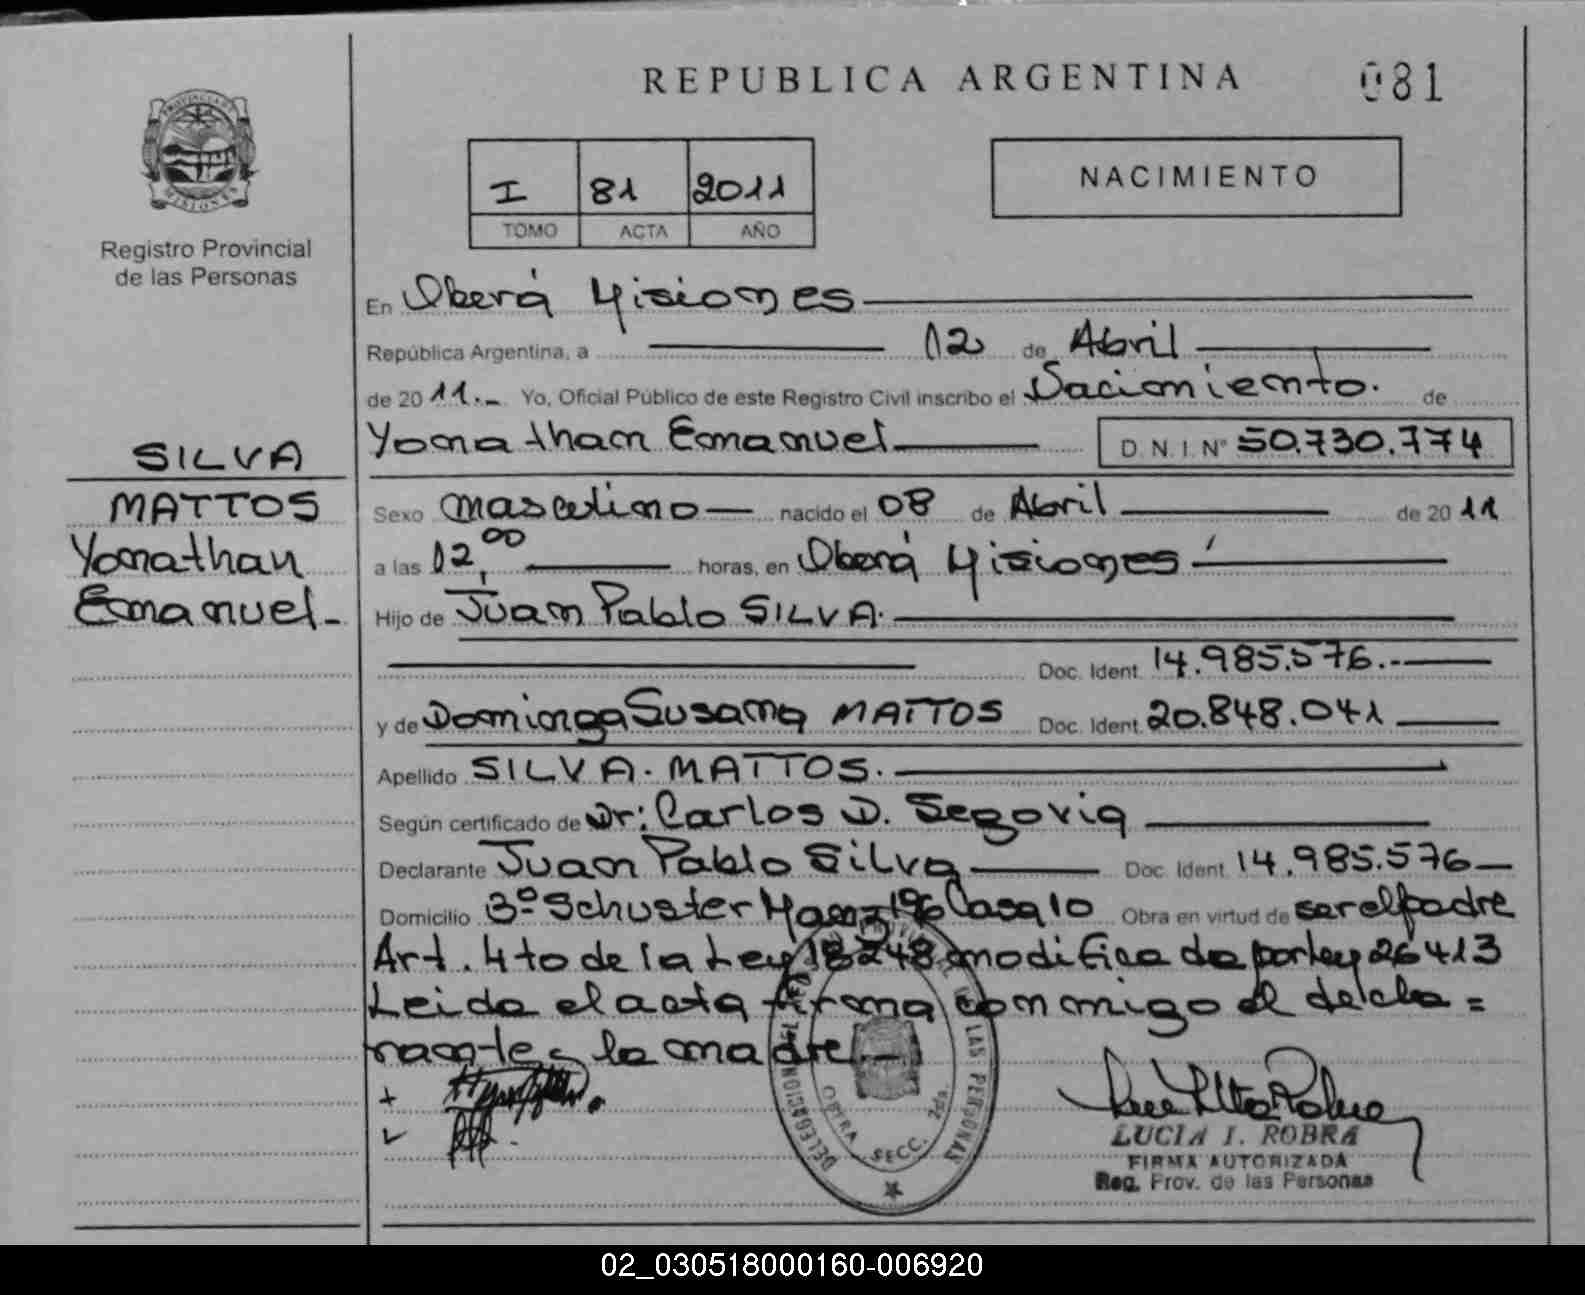 REPUBLICA ARGENTINA
081
I 81 2011
TOMO ACTA AÑO
NACIMIENTO
PROVINCIA DE MISIONES
Registro Provincial
de las Personas
SILVA
MATTOS
Yonathan
Emanuel-
En Oberá Misiones
República Argentina, a 12 de Abril
de 2011.- Yo, Oficial Público de este Registro Civil inscribo el Nacimiento. de
Yonathan Emanuel D.N.I. Nº 50.730.774
Sexo masculino nacido el 08 de Abril de 2011
a las 12,00 horas, en Oberá Misiones
Hijo de Juan Pablo SILVA.
Doc. Ident. 14.985.576.-
y de Dominga Susana MATTOS Doc. Ident. 20.848.041
Apellido SILVA. MATTOS.
Según certificado de Dr: Carlos D. Segovia
Declarante Juan Pablo Silva Doc. Ident. 14.985.576
Domicilio 3º Schuster Manz 196 Casa 10 Obra en virtud de ser el padre
Art. 4to de la Ley 18248 modificada por ley 26413
Leida el acta firma con migo el decla=
rante la madre
DELEGACION DEL REG. PROVINCIAL DE LAS PERSONAS
OBERA SECC. 2da.
LUCIA I. ROBRA
FIRMA AUTORIZADA
Reg. Prov. de las Personas
02_030518000160-006920